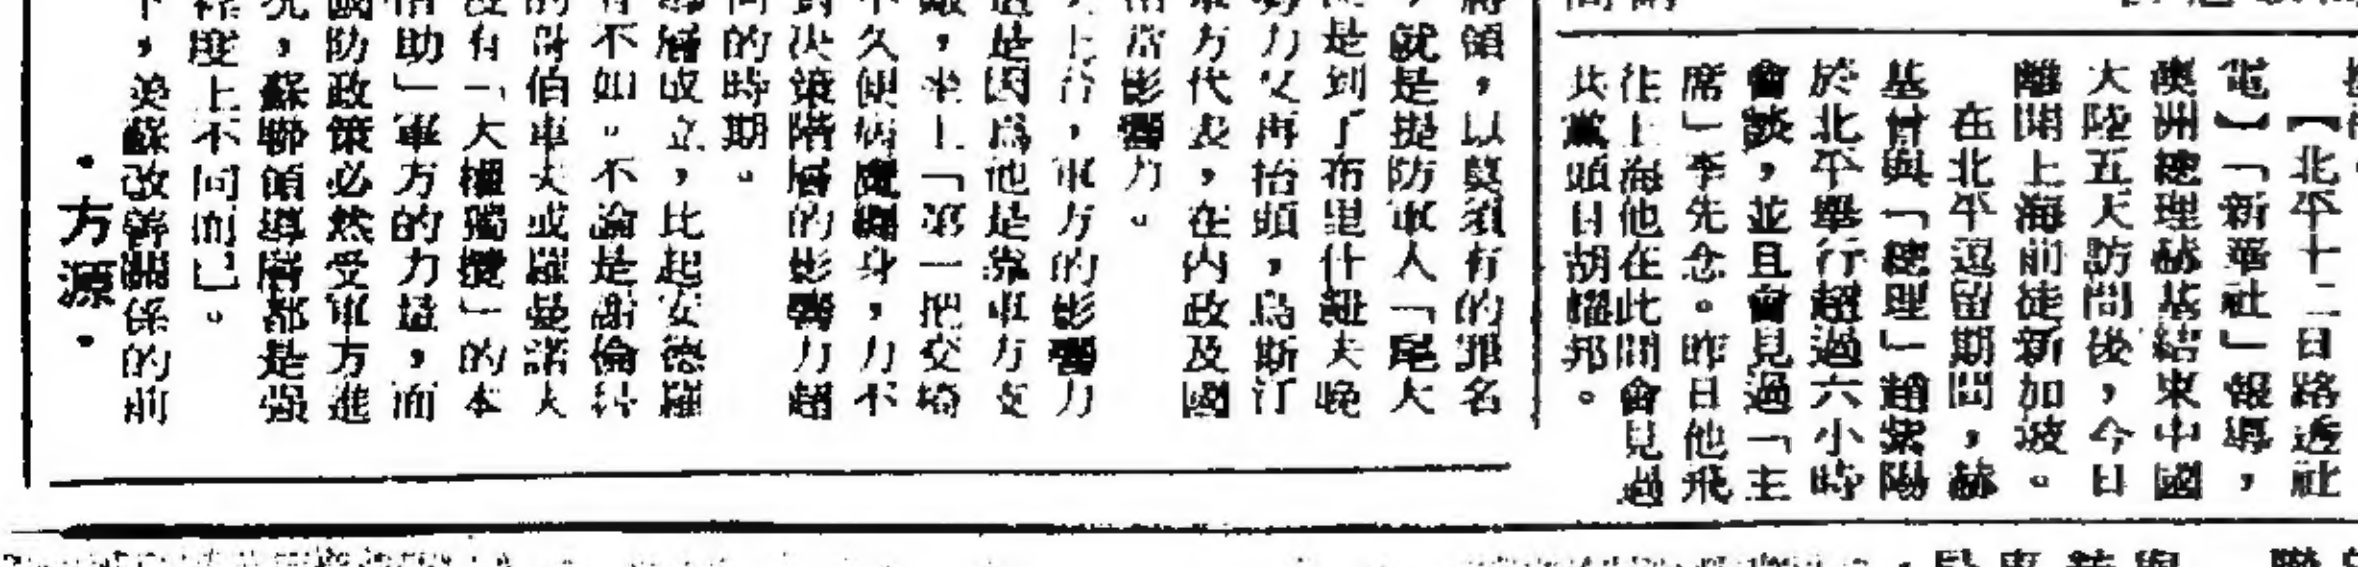 【北平十二日路透社
電】「新華社」報導，
澳洲總理赫基結束中國
大陸五天訪問後，今日
離開上海前往新加坡。
在北平逗留期間，赫
基曾與「總理」趙紫陽
於北平舉行超過六小時
會談，並且會見過「主
席」李先念。昨日他飛
往上海他在此間會見過
共黨頭目胡耀邦。
將領，以莫須有的罪名
，就是提防軍人「尾大
是到了布里什涅夫晚
力又再抬頭，烏斯汀
軍方代表，在內政及國
常影響力。
上台，軍方的影響力
這是因爲他是靠軍方支
，坐上「第一把交椅
不久便病魔纏身，力不
對決策階層的影響力超
的時期。
導層成立，比起安德羅
不如。不論是謝倫科
的哥伯車夫或羅曼諾夫
沒有「大權獨攬」的本
借助」軍方的力量，而
國防政策必然受軍方進
，蘇聯領導層都是强
程度上不同而已。
下，美蘇改善關係的前
・方源・